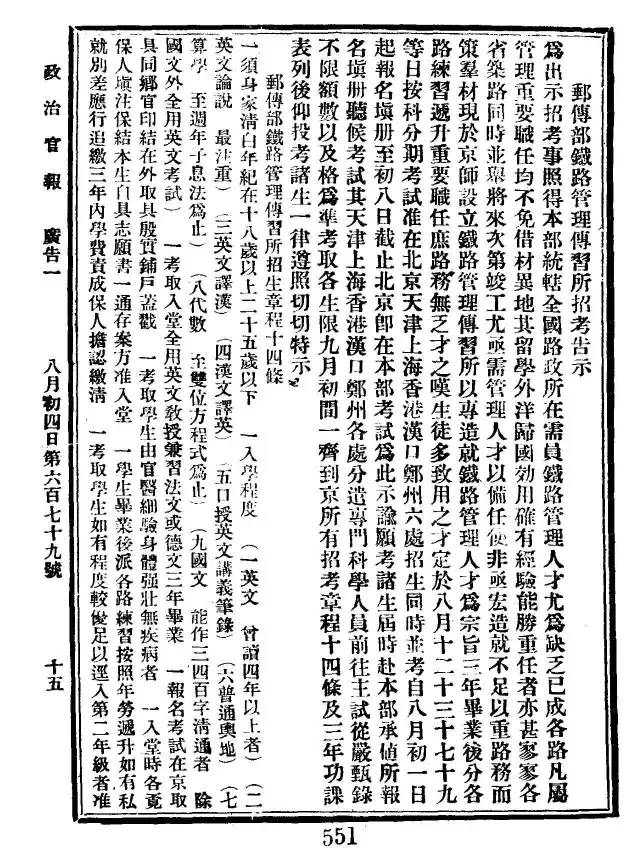 郵傳部鐵路管理傳習所招考告示
爲出示招考事照得本部統轄全國路政所在需員鐵路管理人才尤爲缺乏已成各路凡屬
管理重要職任均不免借材異地其留學外洋歸國効用確有經驗能勝重任者亦甚寥寥各
省築路同時並舉將來次第竣工尤亟需管理人才以備任使非亟宏造就不足以重路務而
策羣材現於京師設立鐵路管理傳習所以專造就鐵路管理人才爲宗旨三年畢業後分各
路練習遞升重要職任庶路務無乏才之嘆生徒多致用之才定於八月十二十三十七十九
等日按科分期考試准在北京天津上海香港漢口鄭州六處招生同時並考自八月初一日
起報名塡册至初八日截止北京卽在本部考試爲此示諭願考諸生屆時赴本部承値所報
名塡册聽候考試其天津上海香港漢口鄭州各處分遣專門科學人員前往主試從嚴甄錄
不限額數以及格爲準考取各生限九月初間一齊到京所有招考章程十四條及三年功課
表列後仰投考諸生一律遵照切切特示
郵傳部鐵路管理傳習所招生章程十四條
一須身家淸白年紀在十八歲以上二十五歲以下　一入學程度　（一英文　曾讀四年以上者）（二
英文論說　最注重）（三英文譯漢）（四漢文譯英）（五口授英文講義筆錄）（六普通輿地）（七
算學　至週年子息法爲止）（八代數　至雙位方程式爲止）（九國文　能作三四百字淸通者　除
國文外全用英文考試）　一考取入堂全用英文敎授兼習法文或德文三年畢業　一報名考試在京取
具同鄉官印結在外取具殷實鋪戶蓋戳　一考取學生由官醫細驗身體强壯無疾病者　一入堂時各覓
保人塡注保結本生自具志願書一通存案方准入堂　一學生畢業後派各路練習按照年勞遞升如有私
就別差應行追繳三年內學費責成保人擔認繳淸　一考取學生如有程度較優足以逕入第二年級者准
政治官報　廣告一　八月初四日第六百七十九號　十五
551